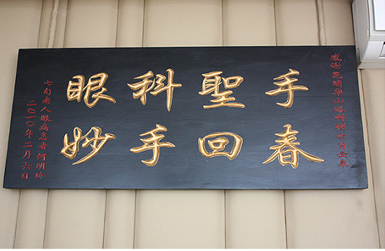 眼科聖手
妙手回春
七旬老人眼病患者何明
二〇一〇年二月六日